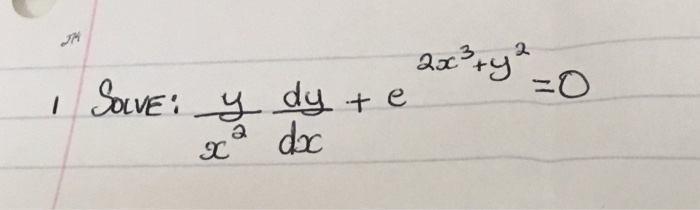 1 SOLVE: y/x² dy/dx + e^(2x³+y²) = 0